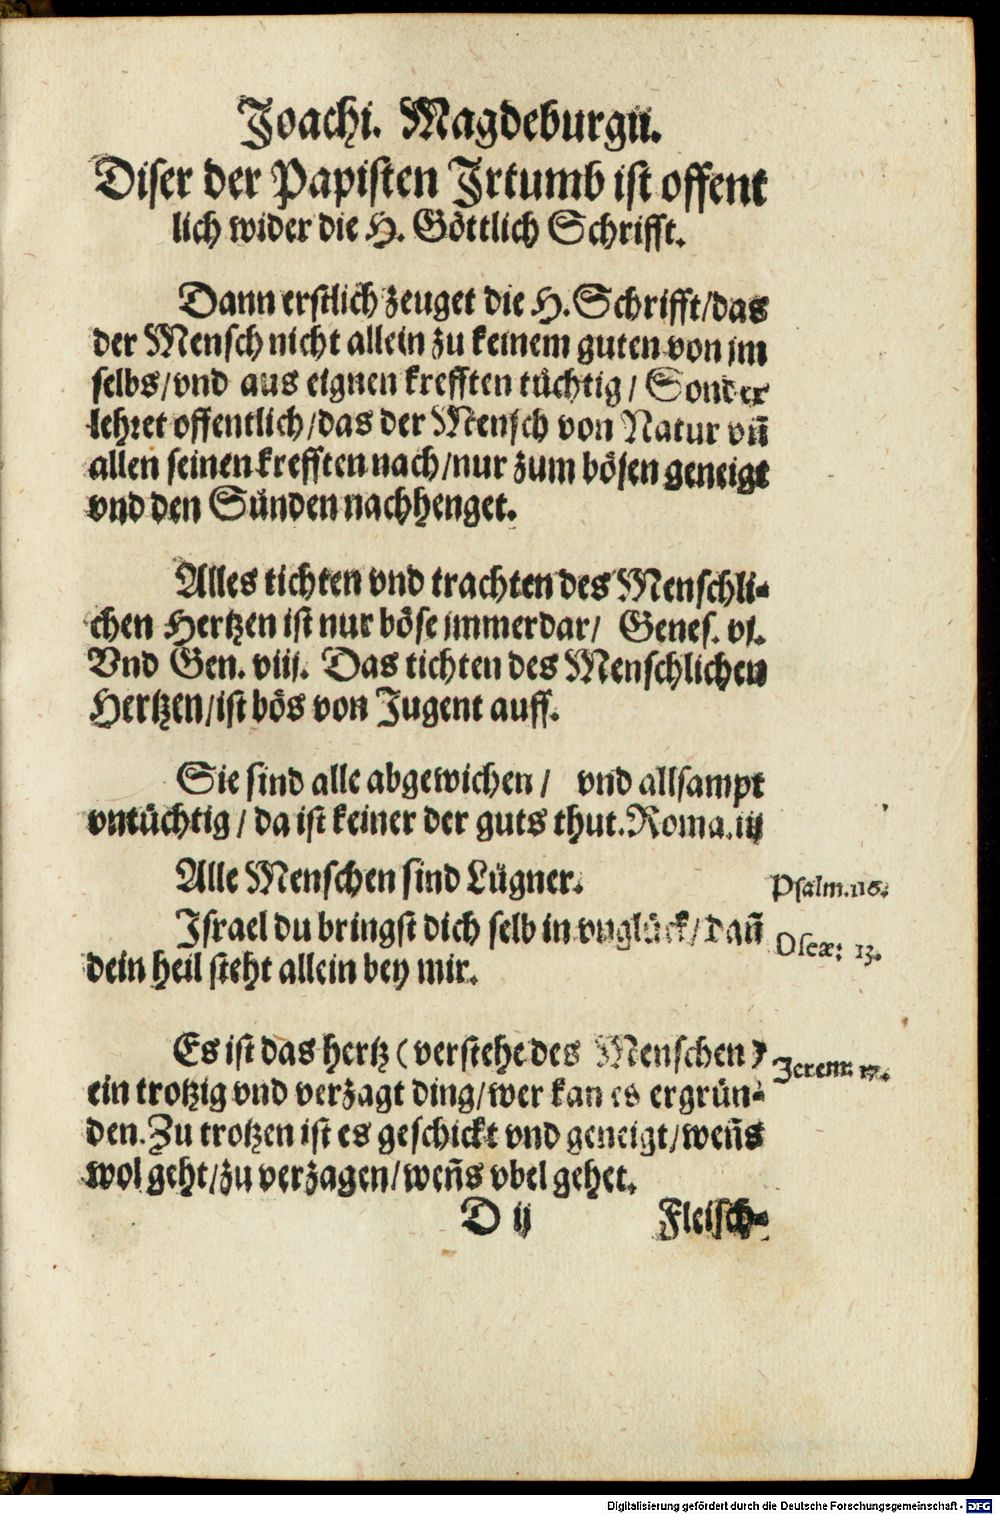 Joachi. Magdeburgii.
Diser der Papisten Irtumb ist offent
lich wider die H. Göttlich Schrifft.
Dann erstlich zeuget die H. Schrifft/das
der Mensch nicht allein zu keinem guten von jm
selbs/vnd aus eignen krefften tüchtig/ Sonder
lehret offentlich/das der Mensch von Natur vñ
allen seinen krefften nach/nur zum bösen geneigt
vnd den Sünden nachhenget.
Alles tichten vnd trachten des Menschli-
chen Hertzen ist nur böse jmmerdar/ Genes. vj.
Vnd Gen. viij. Das tichten des Menschlichen
Hertzen/ist bös von Jugent auff.
Sie sind alle abgewichen/ vnd allsampt
vntüchtig/da ist keiner der guts thut. Roma. iij
Alle Menschen sind Lügner. Psalm. 116.
Israel du bringst dich selb in vnglück/Dañ Oseæ: 13.
dein heil steht allein bey mir.
Es ist das hertz (verstehe des Menschen) Jerem: 17.
ein trotzig vnd verzagt ding/wer kan es ergrün-
den. Zu trotzen ist es geschickt vnd geneigt/weñs
wol geht/zu verzagen/weñs vbel gehet.
D ij Fleisch-
Digitalisierung gefördert durch die Deutsche Forschungsgemeinschaft - DFG